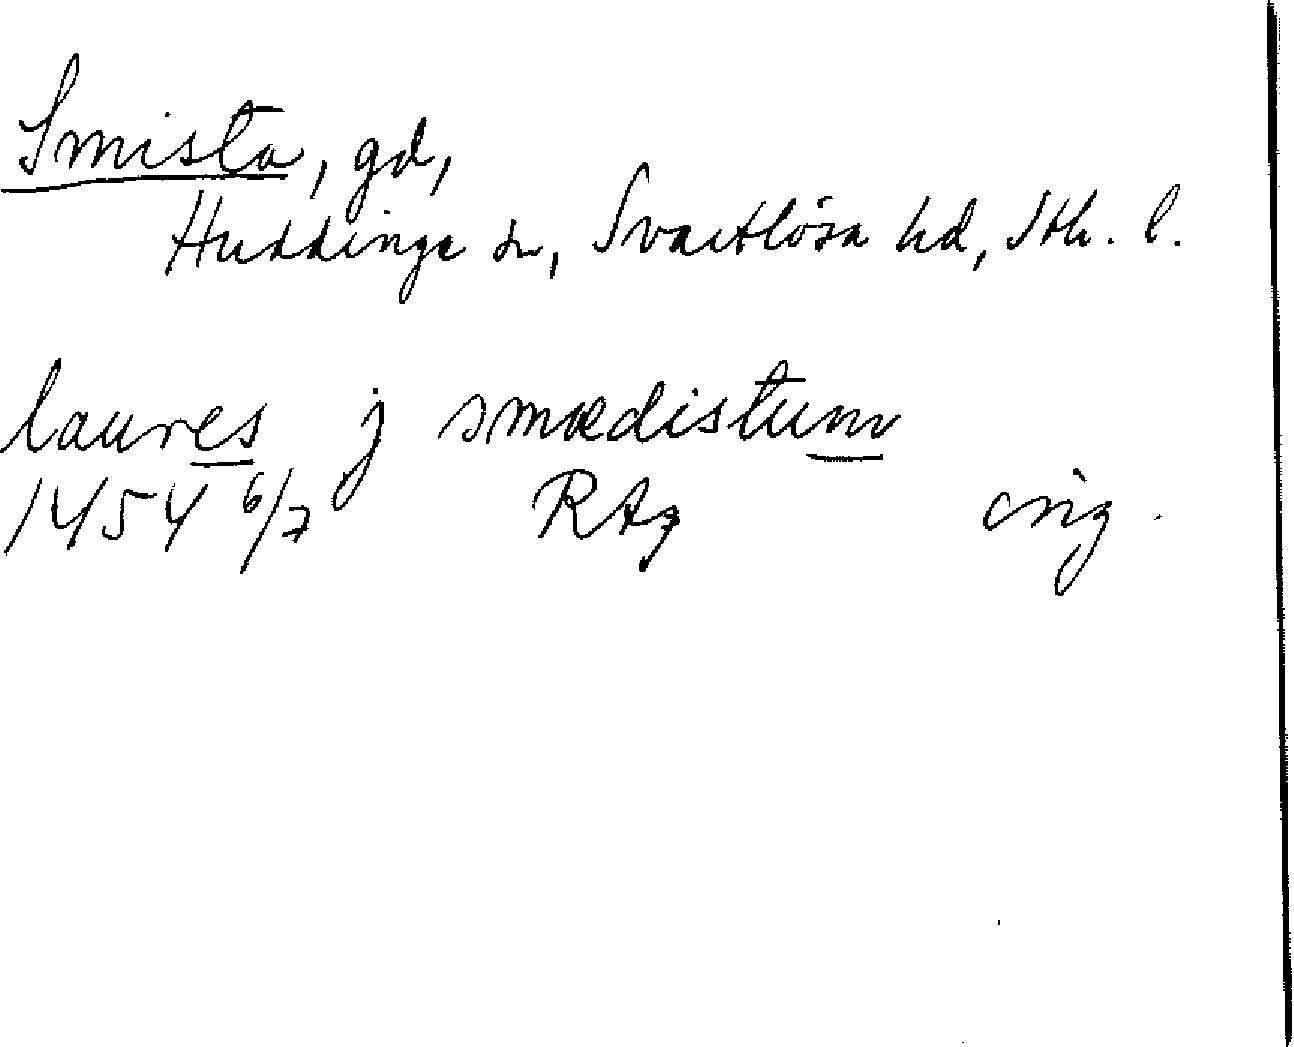 Smista, gd,
Huddinge sn, Svartlösa hd, Sth. l.
laures j smædistum
1454 6/7 RAp orig.